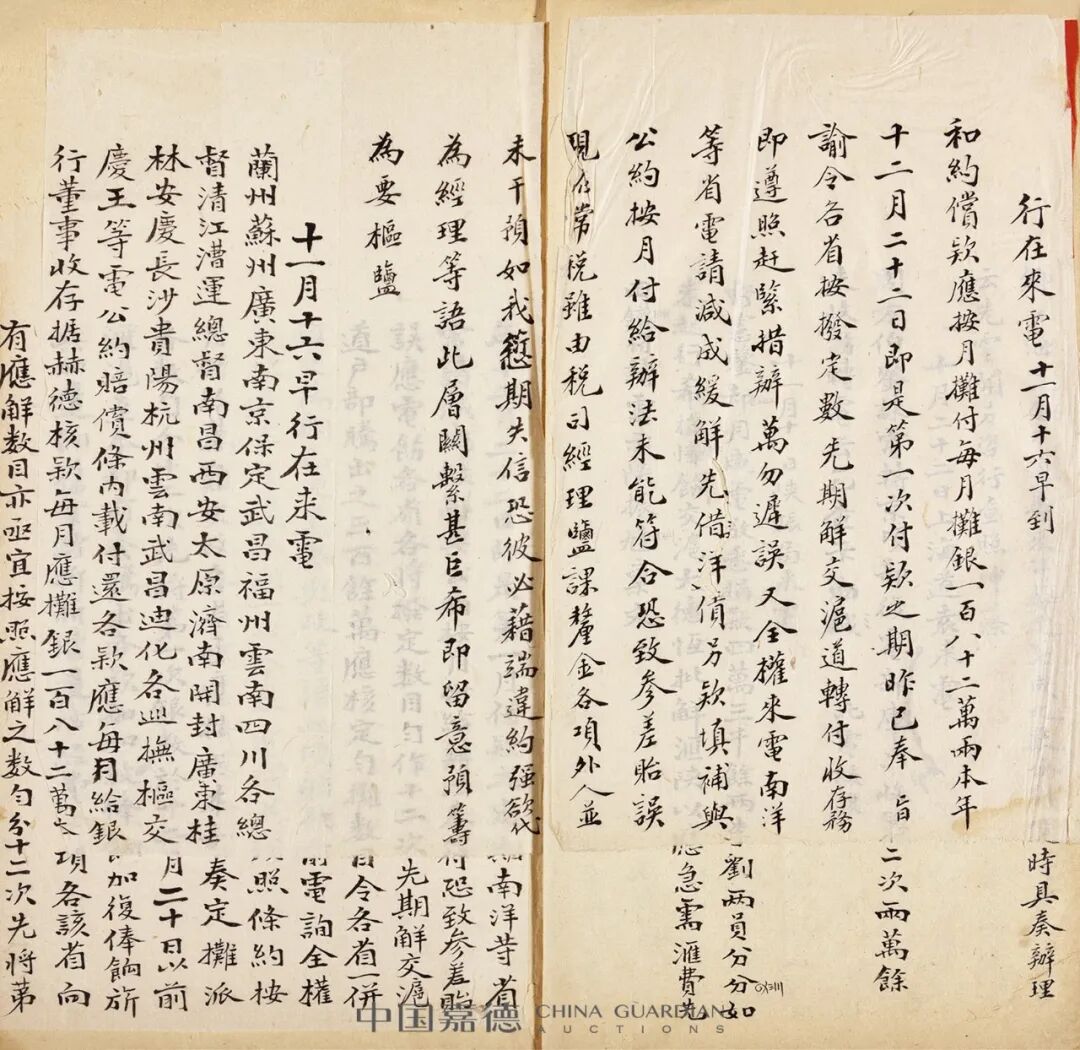 行在來電 十一月十六早到
和約償欵應按月攤付每月攤銀一百八十二萬兩本年
十二月二十二日即是第一次付欵之期昨已奉 旨
諭令各省按撥定數先期解交滬道轉付收存務
即遵照赶緊措辦萬勿遲誤又全權來電南洋
等省電請減成緩解先借洋債另欵填補與
公約按月付給辦法未能符合恐致參差貽誤
現在常税雖由税司經理鹽課釐金各項外人並
時具奏辦理
二次兩萬餘
劉兩員分分如
應急需滙費先
未干預如我愆期失信恐彼必藉端違約强欲代
為經理等語此層關繫甚巨希即留意預籌
為要樞鹽
十一月十六早行在来電
蘭州蘇州廣東南京保定武昌福州雲南四川各總
督清江漕運總督南昌西安太原濟南開封廣東桂
林安慶長沙貴陽杭州雲南武昌迪化各巡撫樞交
慶王等電公約賠償條内載付還各欵應每月給銀
行董事收存據赫德核欵每月應攤銀一百八十二萬
南洋等省
付恐致参差貽
先期解交滬
令各省一併
前電詢全權
照條約按
奏定攤派
月二十日以前
加復俸餉所
項各該省向
有應解數目亦亟宜按照應解之数匀分十二次先將第
中国嘉德 CHINA GUARDIAN AUCTIONS